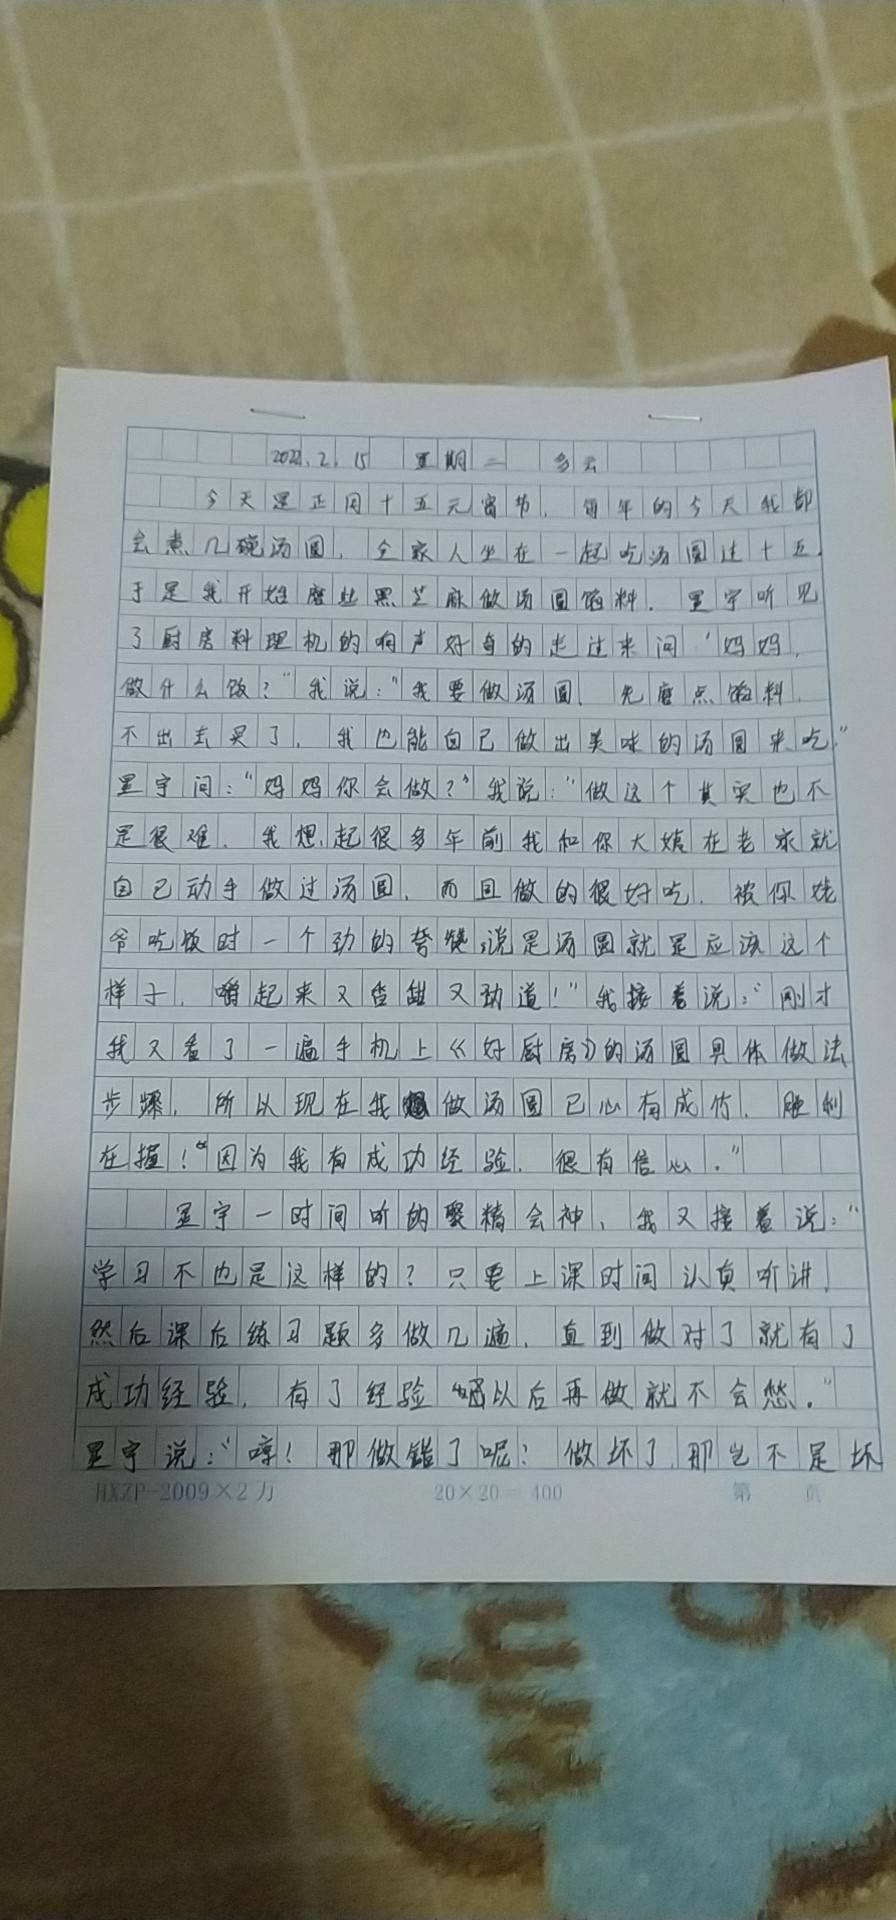 2022.2.15 星期二 多云
今天是正月十五元宵节，每年的今天我都
会煮几碗汤圆，全家人坐在一起吃汤圆过十五，
于是我开始磨些黑芝麻做汤圆馅料，星宇听见
了厨房料理机的响声好奇的走过来问“妈妈，
做什么饭？”我说：“我要做汤圆，先磨点馅料，
不出去买了，我也能自己做出美味的汤圆来吃”
星宇问：“妈妈你会做？”我说：“做这个其实也不
是很难，我想起很多年前我和你大姨在老家就
自己动手做过汤圆，而且做的很好吃，被你姥
爷吃饭时一个劲的夸赞，说是汤圆就是应该这个
样子，嚼起来又香甜又劲道！”我接着说：“刚才
我又看了一遍手机上《好厨房》的汤圆具体做法
步骤，所以现在我做汤圆已心有成竹，胜利
在握！“因为我有成功经验，很有信心。”
星宇一时间听的聚精会神，我又接着说：“
学习不也是这样的？只要上课时间认真听讲，
然后课后练习题多做几遍，直到做对了就有了
成功经验，有了经验 以后再做就不会愁。”
星宇说：“哼！那做错了呢？做坏了，那岂不是坏
HXZP-2009×2万 20×20=400 第 页